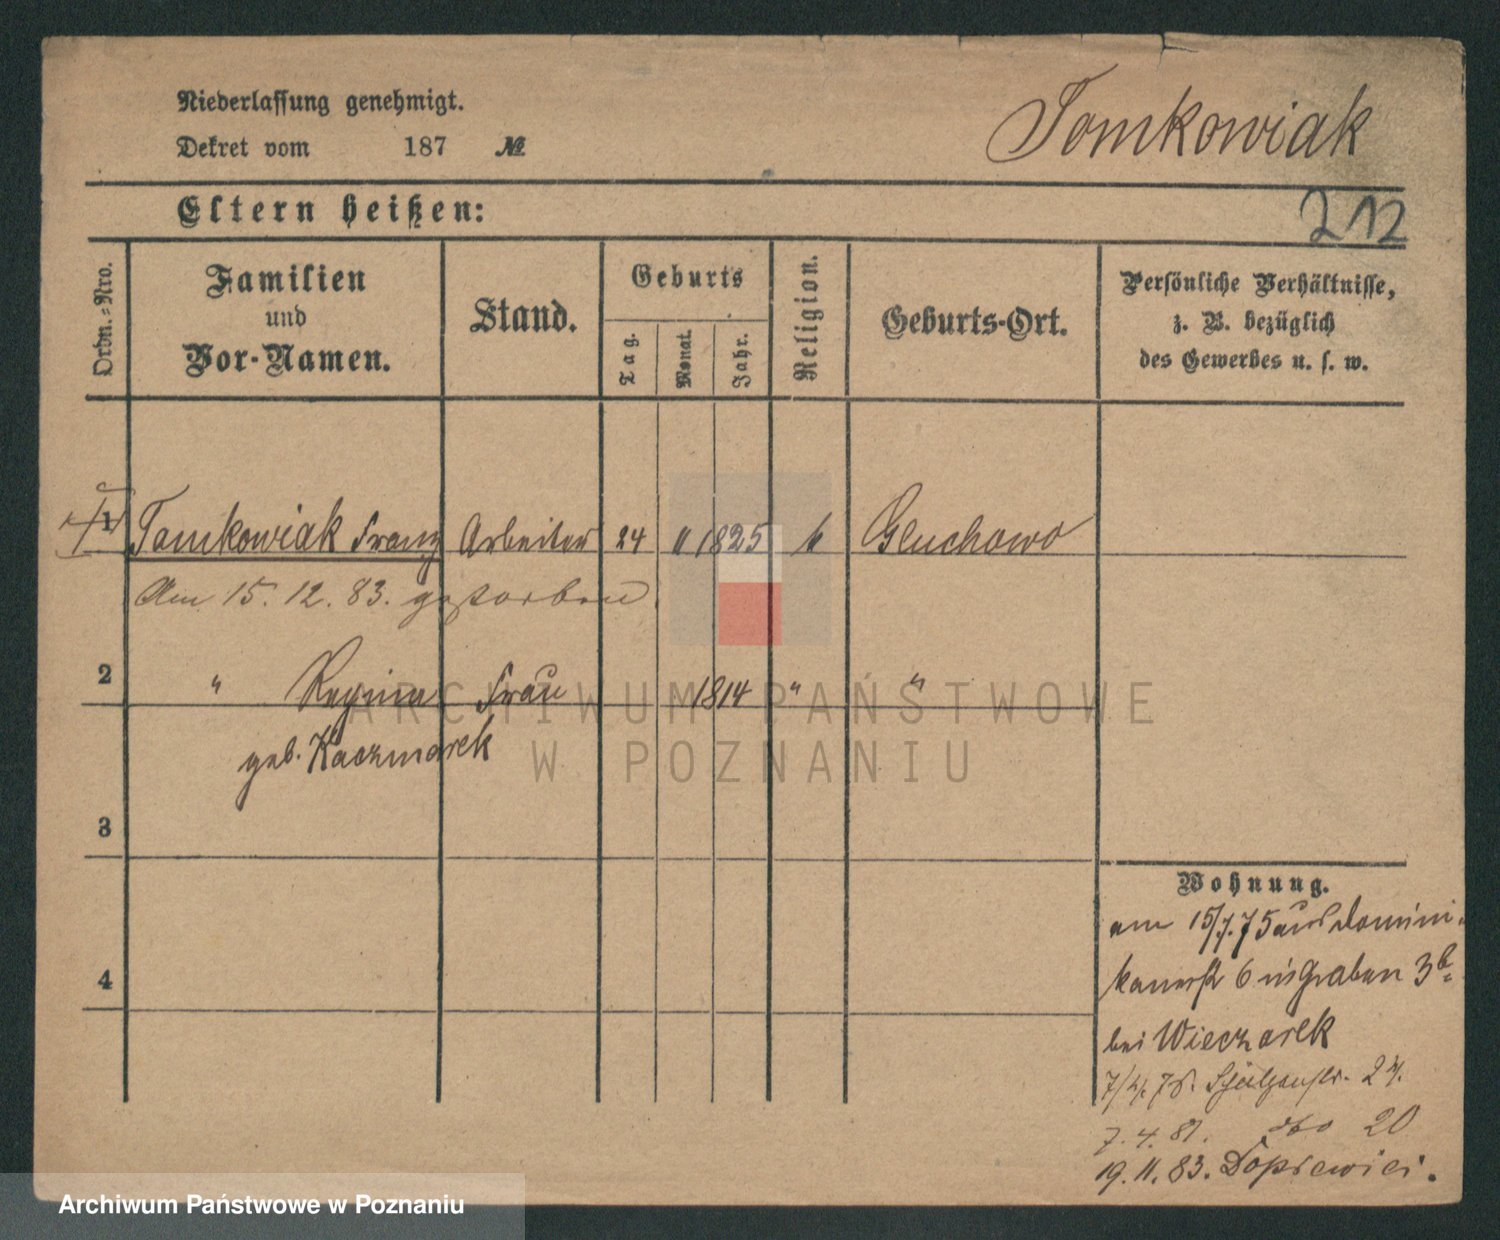 Niederlassung genehmigt.
Dekret vom 187 №
Tomkowiak
Eltern heißen:
212
Ordn.-Nro.
Familien und Vor-Namen.
Stand.
Geburts
Tag.
Monat.
Jahr.
Religion.
Geburts-Ort.
Persönliche Verhältnisse,
z. B. bezüglich
des Gewerbes u. s. w.
1 Tomkowiak Franz Arbeiter 24 1825 k Gluchowo
Am 15. 12. 83. gestorben
2 " Regina Frau 1814 " "
geb. Kaczmarek
3
4
Wohnung.
am 15/7. 75 aus Domini-
kanerstr 6 n Graben 3b
bei Wieczorek
7/4. 78. Schützenstr. 24.
7. 4. 81. dto 20
19. 11. 83. Dopiewiec.
ARCHIWUM PAŃSTWOWE
W POZNANIU
Archiwum Państwowe w Poznaniu